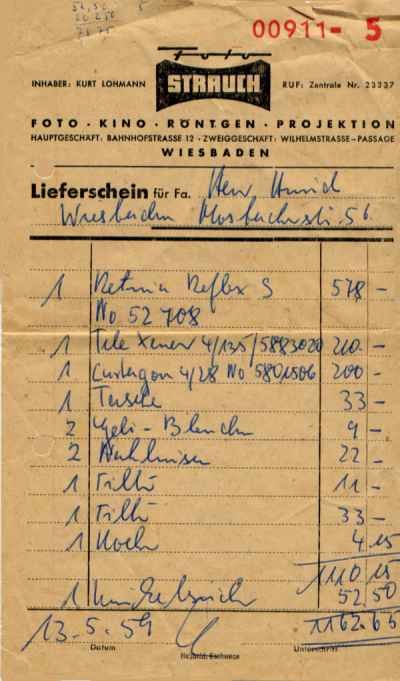 00911- 5
Foto
STRAUCH
INHABER: KURT LOHMANN
RUF: Zentrale Nr. 23337
FOTO · KINO · RÖNTGEN · PROJEKTION
HAUPTGESCHÄFT: BAHNHOFSTRASSE 12 · ZWEIGGESCHÄFT: WILHELMSTRASSE-PASSAGE
WIESBADEN
Lieferschein für Fa. Herr
Wiesbaden Mosbacherstr. 56
1 Retina Reflex S 578 -
No 52708
1 Tele Xenar 4/135/5883020 210.-
1 Curtagon 4/28 No 5801506 200 -
1 Tasche 33 -
2 Geli-Blenden 9 -
2 Nahlinsen 22 -
1 Filter 11 -
1 Filter 33 -
1 Koch 4.15
1110.15
1 52.50
13.5.59 1162.65
Datum
Unterschrift